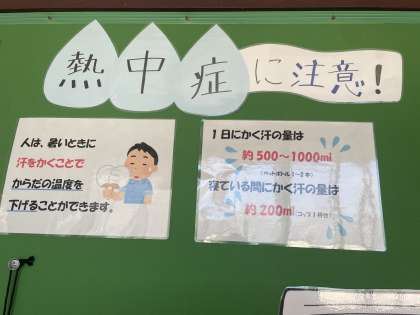 熱中症に注意!
人は、暑いときに
汗をかくことで
からだの温度を
下げることができます。
1日にかく汗の量は
約500～1000ml
(ペットボトル1～2本)
寝ている間にかく汗の量は
約200ml(コップ1杯分)